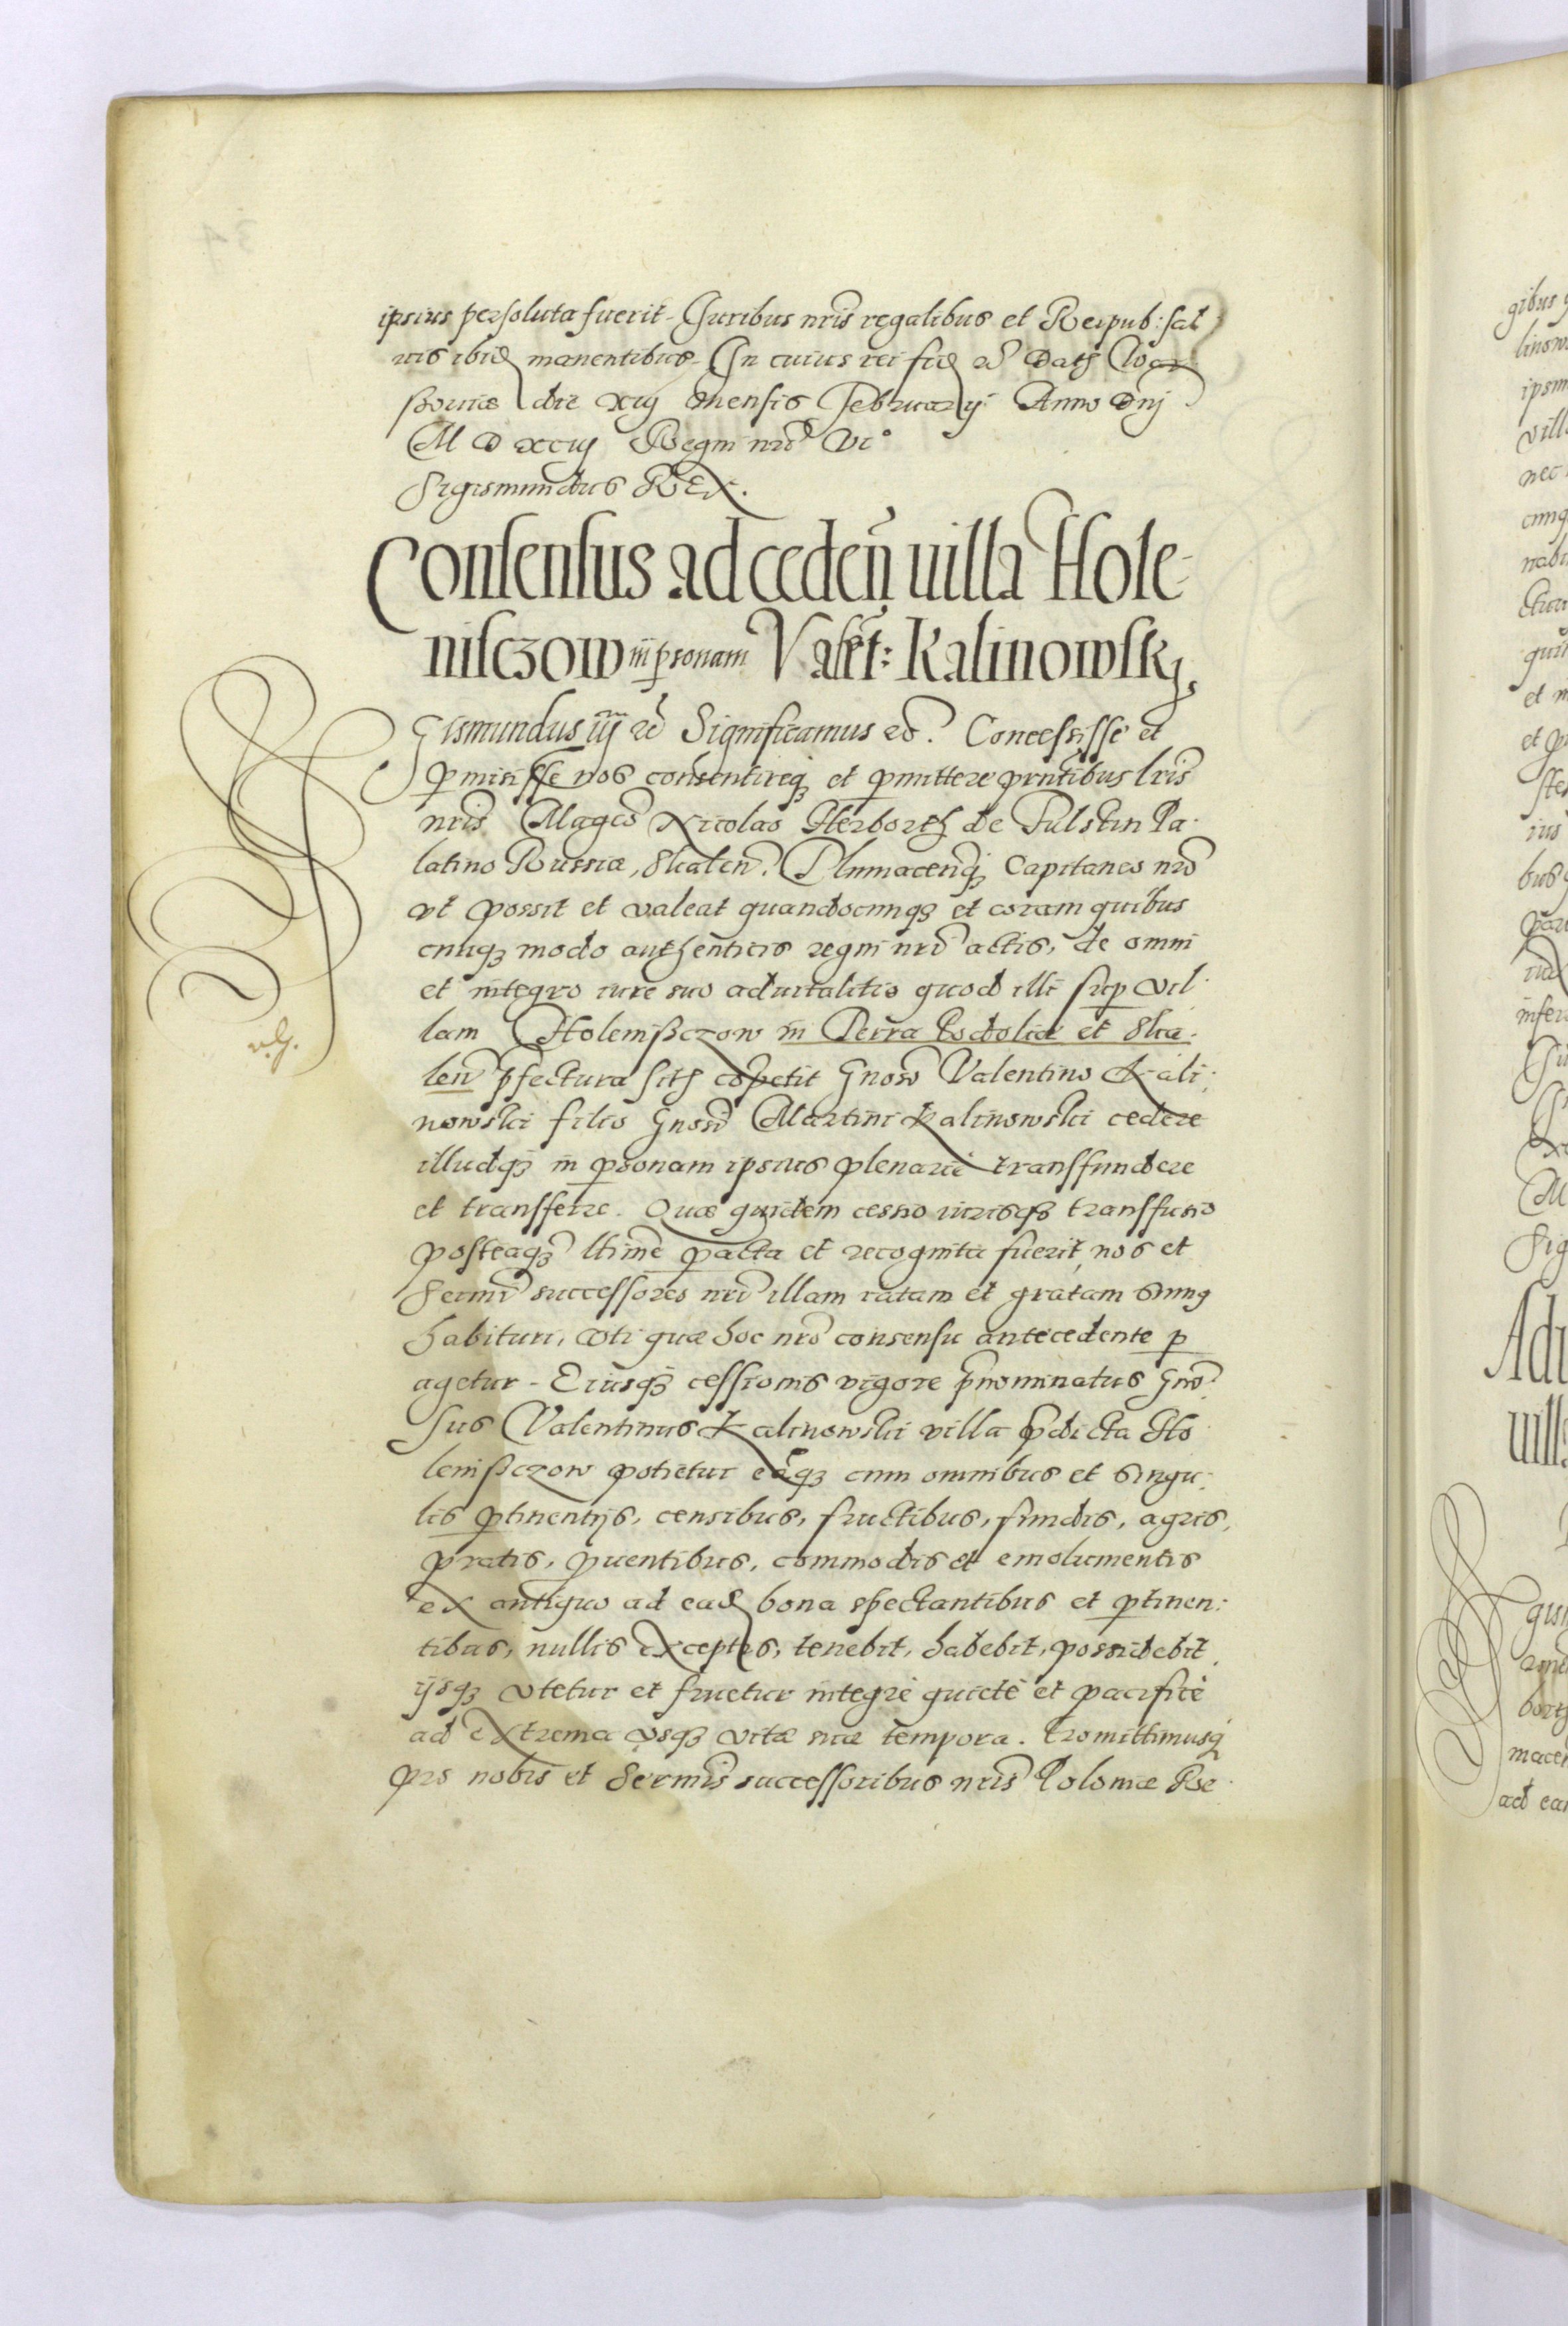 ipsius persoluta fuerit. Iuribus nris regalibus et Reipub: sal
uis ibid manentibus. In cuius rei fid etc Dat War
ssouiæ die xiij mensis February Anno Dnj
M D xciij Regni nri Vi°
Sigismundus REX.
Consensus ad ceden uilla Hole-
nisczow in psonam Valent: Kalinowskj,
Gismundus iij etc Significamus etc. Concessisse et
pmisisse nos consentireq et pmittere pntibus lris
nris Magco Nicolao Herborth de Fulstin Pa-
latino Russiæ, Skalen. Tlumacenq Capitaneo nro
vt possit et valeat quandocunq et coram quibus
cnuq modo authenticis regni nri actis, de omni
et integro iure suo aduitalitio quod illi sup vil-
lam Holenissczow in Terra Podoliæ et Ska-
len pfectura sit copetit Gnoso Valentino Kali-
nowski filio Gnosi Martini Kalinowski cedere
illudq in psonam ipsius plenarie transfundere
et transferre. Quæ quidem cessio iurisq transfusio
posteaq ltime pacta et recognita fuerit, nos et
Sermi successores nri illam ratam et gratam sumus
habituri, vti quæ hoc nro consensu antecedente p
agetur. Eiusq cessionis vigore pnominatus Gno
sus Valentinus Kalinowski villa pdicta Ho
lenissczow potietur eaq cum omnibus et singu-
lis ptinentijs, censibus, fructibus, fundis, agris,
pratis, puentibus, commodis et emolumentis
ex antiquo ad ead bona spectantibus et ptinen-
tibus, nullis exceptis, tenebit, habebit, possidebit,
ijsq vtetur et fruetur integre quietè et pacificè
ad extrema vsq vitæ suæ tempora. Promittimusq
pro nobis et Sermis successoribus nris Poloniæ Re-